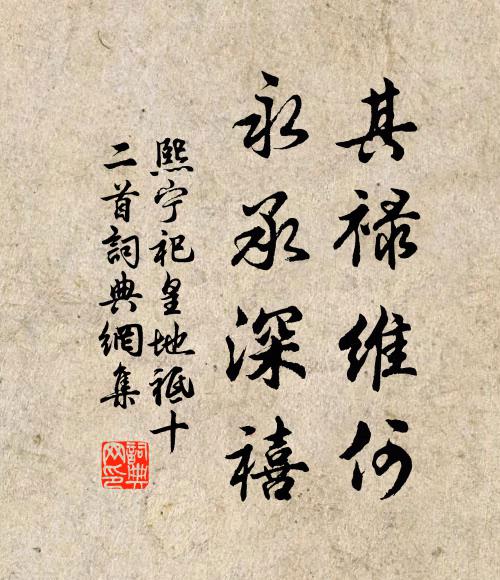 其禄维何
永承深禧
熙宁祀皇地祗十
二首詞典網集
詞典
网印